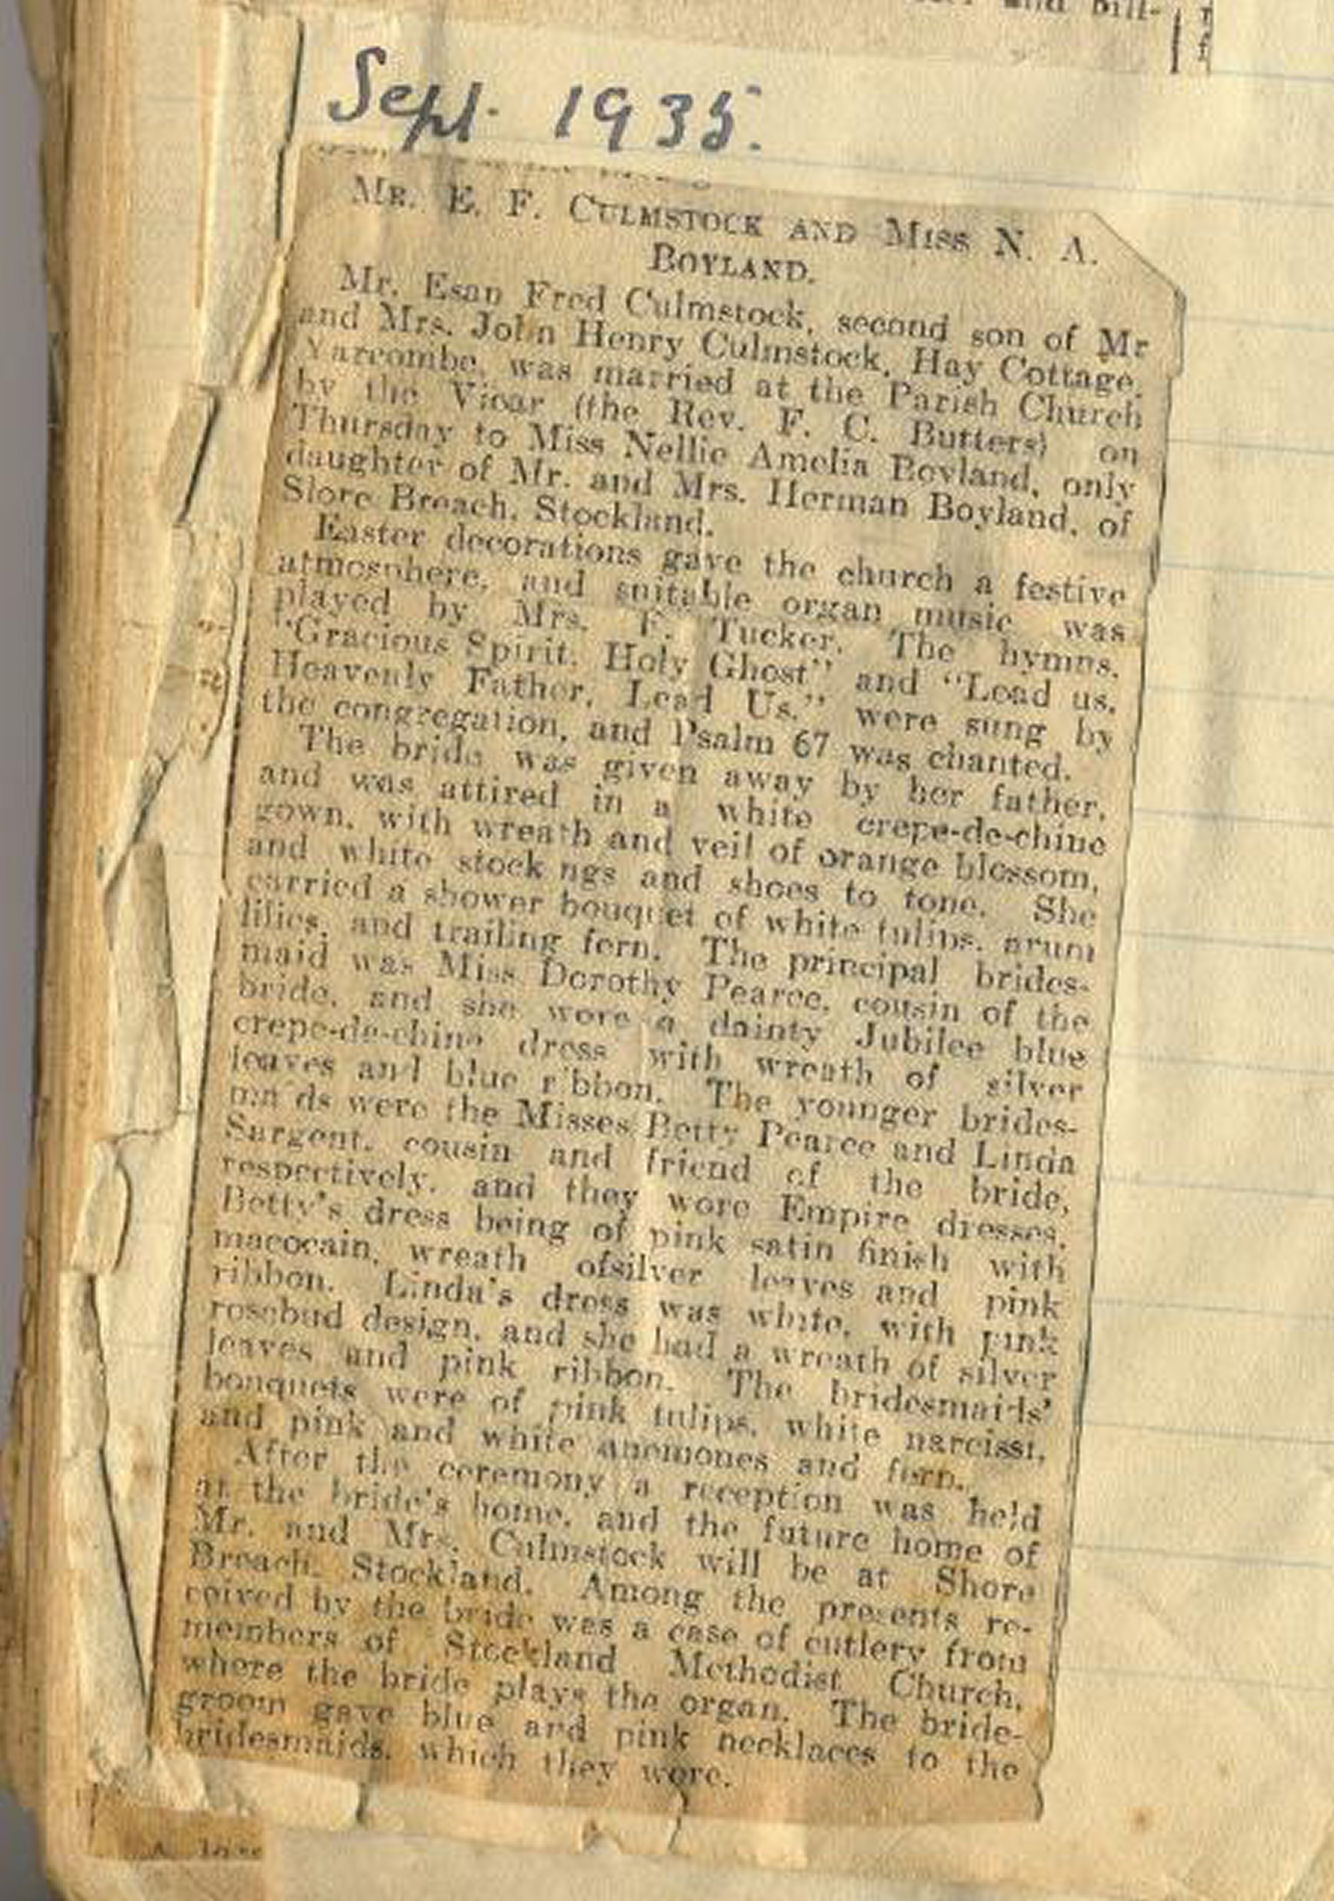 and bill-
Sept. 1935.
MR. E. F. CULMSTOCK AND MISS N. A.
BOYLAND.
Mr. Esan Fred Culmstock, second son of Mr
and Mrs. John Henry Culmstock, Hay Cottage,
Yarcombe, was married at the Parish Church
by the Vicar (the Rev. F. C. Butters) on
Thursday to Miss Nellie Amelia Boyland, only
daughter of Mr. and Mrs. Herman Boyland, of
Slore Breach, Stockland.
Easter decorations gave the church a festive
atmosphere, and suitable organ music was
played by Mrs. F. Tucker. The hymns,
"Gracious Spirit, Holy Ghost" and "Lead us,
Heavenly Father, Lead Us," were sung by
the congregation, and Psalm 67 was chanted.
The bride was given away by her father,
and was attired in a white crepe-de-chine
gown, with wreath and veil of orange blossom,
and white stock ngs and shoes to tone. She
carried a shower bouquet of white tulips, arum
lilies, and trailing fern. The principal brides-
maid was Miss Dorothy Pearce, cousin of the
bride, and she wore a dainty Jubilee blue
crepe-de-chine dress with wreath of silver
leaves and blue r bbon. The younger brides-
ma ds were the Misses Betty Pearce and Linda
Sargent, cousin and friend of the bride,
respectively, and they wore Empire dresses,
Betty's dress being of pink satin finish with
macocain, wreath ofsilver leaves and pink
ribbon. Linda's dress was white, with pink
rosebud design, and she had a wreath of silver
leaves and pink ribbon. The bridesmaids'
bouquets were of pink tulips, white narcissi,
and pink and white anemones and fern.
After the ceremony a reception was held
at the bride's home, and the future home of
Mr. and Mrs. Culmstock will be at Shore
Breach, Stockland. Among the presents re-
ceived by the bride was a case of cutlery from
members of Stockland Methodist Church,
where the bride plays the organ. The bride-
groom gave blue and pink necklaces to the
bridesmaids, which they wore.